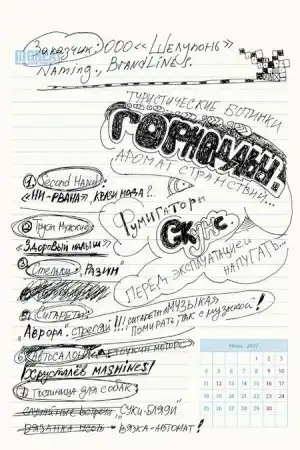 Заказчик: ООО «Шелупонь»
Naming, BrandLines.
ТУРИСТИЧЕСКИЕ БОТИНКИ
ГОРНОДАВЫ.
АРОМАТ СТРАНСТВИЙ...
1. Second Hand:
«НИ-РВАНА», КВАЗИ МОДА!..
Фумигаторы
Скунс
ПЕРЕД ЭКСПЛУАТАЦИЕЙ
НАПУГАТЬ...
2. Трусы Мужские:
«Здоровый малыш»
3. Стельки: „РАЗИН"
5. СИГАРЕТЫ:
„Аврора". Стреляй!!! СИГАРЕТЫ «МУЗЫКА»
Помирать, так с музыкой!
6. АВТОСАЛОН
Хрусталёв MASHINES!
7. Гостиница для собак:
„СУКИ-БЛЯДИ"
ВЯЖА-АВТОМАТ!
Июнь 2007
1 2 3
4 5 6 7 8 9 10
11 12 13 14 15 16 17
18 19 20 21 22 23 24
25 26 27 28 29 30